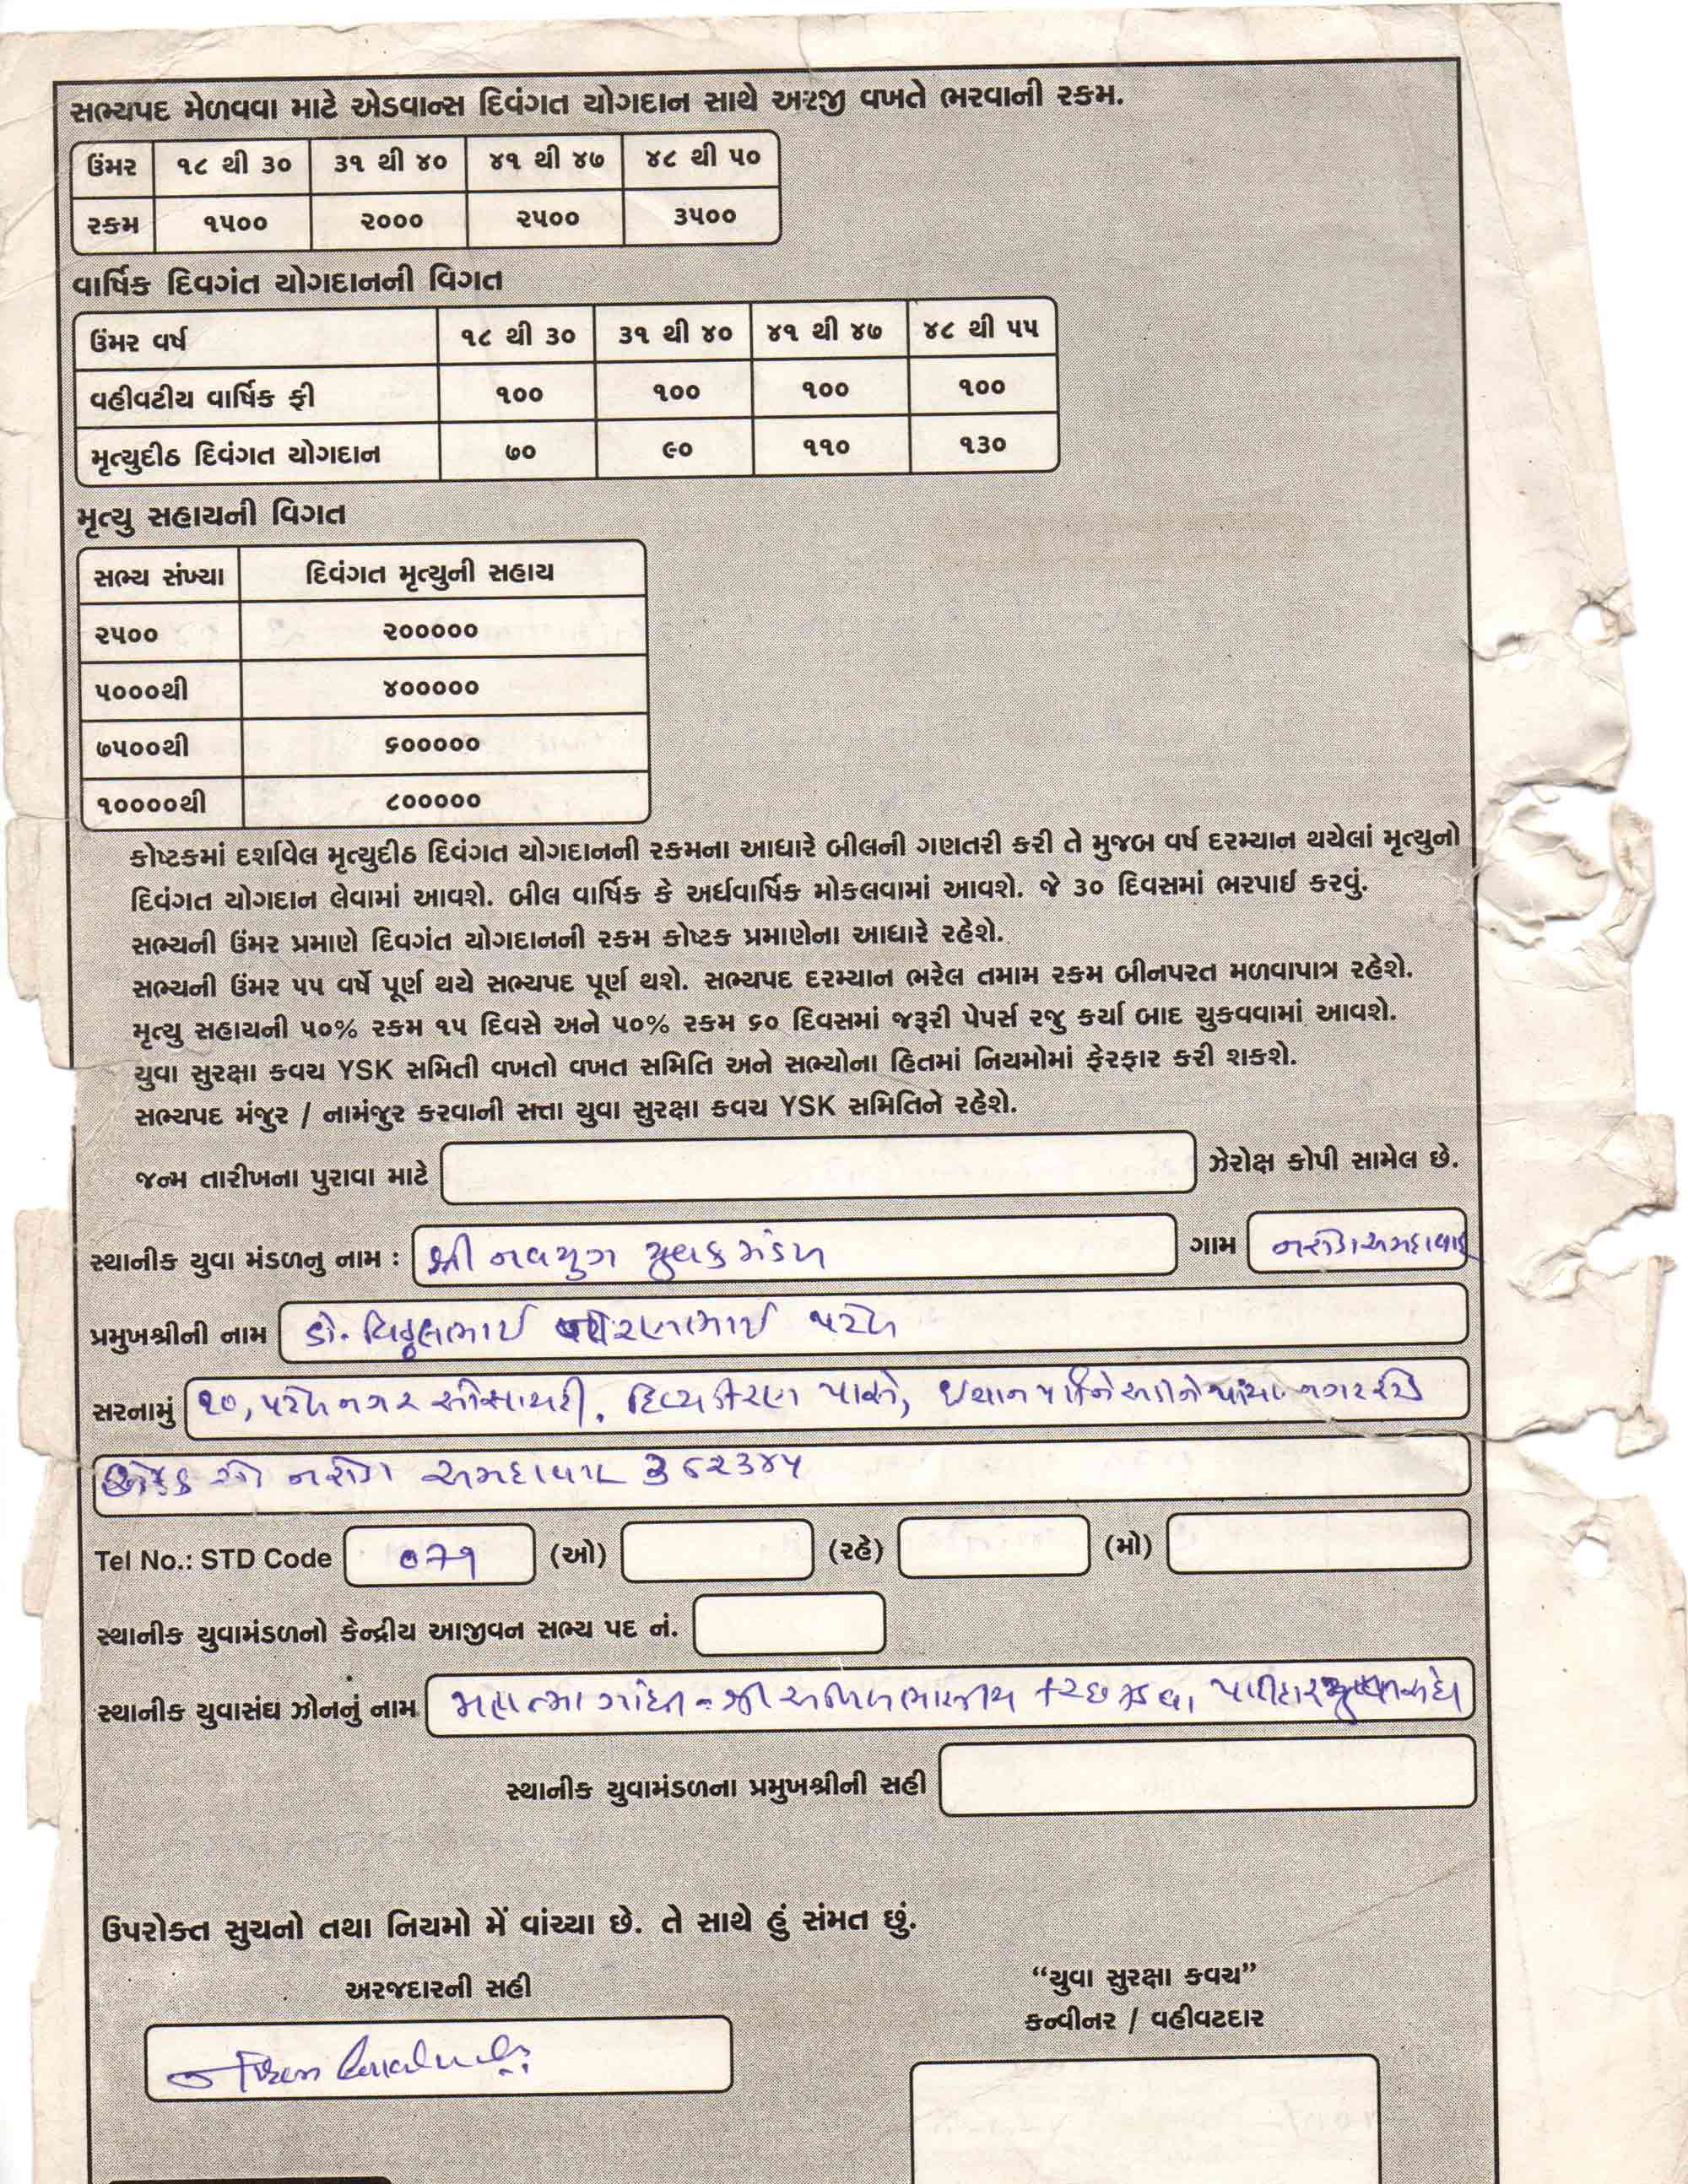 સભ્યપદ મેળવવા માટે એડવાન્સ દિવંગત યોગદાન સાથે અરજી વખતે ભરવાની રકમ.
ઉંમર ૧૮ થી ૩૦ ૩૧ થી ૪૦ ૪૧ થી ૪૭ ૪૮ થી ૫૦
રકમ ૧૫૦૦ ૨૦૦૦ ૨૫૦૦ ૩૫૦૦
વાર્ષિક દિવગંત યોગદાનની વિગત
ઉંમર વર્ષ ૧૮ થી ૩૦ ૩૧ થી ૪૦ ૪૧ થી ૪૭ ૪૮ થી ૫૫
વહીવટીય વાર્ષિક ફી ૧૦૦ ૧૦૦ ૧૦૦ ૧૦૦
મૃત્યુદીઠ દિવંગત યોગદાન ૭૦ ૯૦ ૧૧૦ ૧૩૦
મૃત્યુ સહાયની વિગત
સભ્ય સંખ્યા દિવંગત મૃત્યુની સહાય
૨૫૦૦ ૨૦૦૦૦૦
૫૦૦૦થી ૪૦૦૦૦૦
૭૫૦૦થી ૬૦૦૦૦૦
૧૦૦૦૦થી ૮૦૦૦૦૦
કોષ્ટકમાં દર્શાવેલ મૃત્યુદીઠ દિવંગત યોગદાનની રકમના આધારે બીલની ગણતરી કરી તે મુજબ વર્ષ દરમ્યાન થયેલાં મૃત્યુનો
દિવંગત યોગદાન લેવામાં આવશે. બીલ વાર્ષિક કે અર્ધવાર્ષિક મોકલવામાં આવશે. જે ૩૦ દિવસમાં ભરપાઈ કરવું.
સભ્યની ઉંમર પ્રમાણે દિવગંત યોગદાનની રકમ કોષ્ટક પ્રમાણેના આધારે રહેશે.
સભ્યની ઉંમર ૫૫ વર્ષે પૂર્ણ થયે સભ્યપદ પૂર્ણ થશે. સભ્યપદ દરમ્યાન ભરેલ તમામ રકમ બીનપરત મળવાપાત્ર રહેશે.
મૃત્યુ સહાયની ૫૦% રકમ ૧૫ દિવસે અને ૫૦% રકમ ૬૦ દિવસમાં જરૂરી પેપર્સ રજુ કર્યા બાદ ચુકવવામાં આવશે.
યુવા સુરક્ષા કવચ YSK સમિતી વખતો વખત સમિતિ અને સભ્યોના હિતમાં નિયમોમાં ફેરફાર કરી શકશે.
સભ્યપદ મંજુર / નામંજુર કરવાની સત્તા યુવા સુરક્ષા કવચ YSK સમિતિને રહેશે.
જન્મ તારીખના પુરાવા માટે ઝેરોક્ષ કોપી સામેલ છે.
સ્થાનીક યુવા મંડળનુ નામ : શ્રી નવયુગ યુવક મંડળ ગામ નરોડા અમદાવાદ
પ્રમુખશ્રીની નામ ડો. વિઠ્ઠલભાઈ પટેલ
સરનામું ૧૦, પટેલનગર સોસાયટી, દિવ્યકીરણ પાસે,
નરોડા અમદાવાદ ૩૮૨૩૪૫
Tel No.: STD Code ૦૭૯ (ઓ) (રહે) (મો)
સ્થાનીક યુવામંડળનો કેન્દ્રીય આજીવન સભ્ય પદ નં.
સ્થાનીક યુવાસંઘ ઝોનનું નામ મહાત્મા ગાંધી - શ્રી અખિલ ભારતીય કચ્છ કડવા પાટીદાર યુવા સંઘ
સ્થાનીક યુવામંડળના પ્રમુખશ્રીની સહી
ઉપરોક્ત સુચનો તથા નિયમો મેં વાંચ્યા છે. તે સાથે હું સંમત છું.
અરજદારની સહી
“યુવા સુરક્ષા કવચ”
કન્વીનર / વહીવટદાર